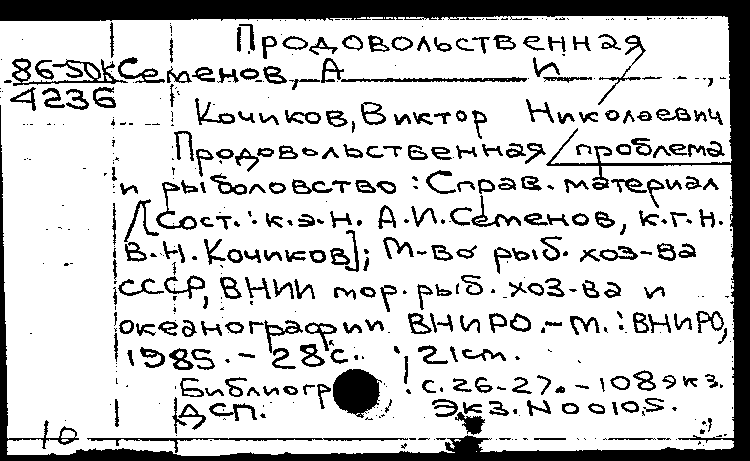 Продовольственная
86-50к Семенов, А И ,
4236
Кочиков, Виктор Николаевич
Продовольственная проблема
и рыболовство : Справ. материал
/[Сост.: к.э.н. А.И.Семенов, к.г.н.
В.Н.Кочиков]; М-во рыб. хоз-ва
СССР, ВНИИ мор. рыб. хоз-ва и
океанографии ВНИРО.-М.: ВНИРО,
1985.- 28с. ; 21см.
Библиогр : с.26-27.-108экз.
ДСП. Экз.N00105.
10